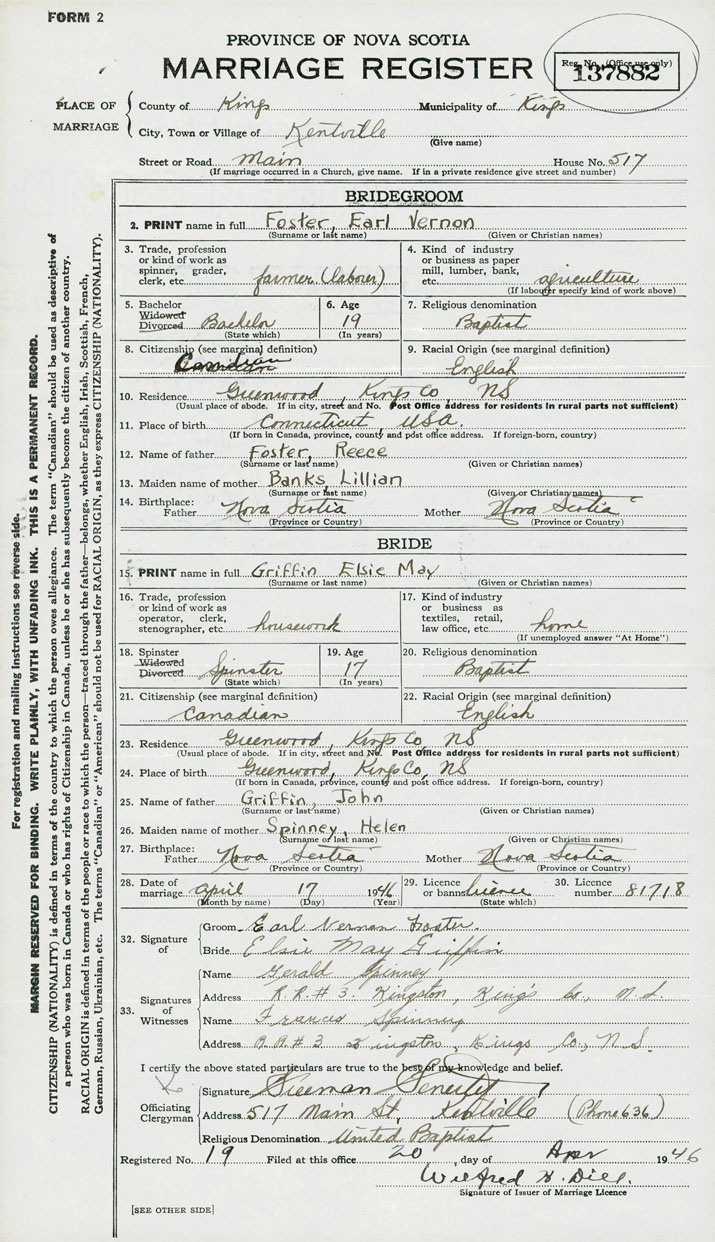 FORM 2
PROVINCE OF NOVA SCOTIA
MARRIAGE REGISTER
Reg. No. (Office use only)
137882
PLACE OF MARRIAGE
County of Kings Municipality of Kings
City, Town or Village of Kentville
(Give name)
Street or Road Main House No. 517
(If marriage occurred in a Church, give name. If in a private residence give street and number)
BRIDEGROOM
2. PRINT name in full Foster, Earl Vernon
(Surname or last name) (Given or Christian names)
3. Trade, profession 4. Kind of industry
or kind of work as or business as paper
spinner, grader, mill, lumber, bank,
clerk, etc. farmer (laborer) etc. agriculture
(If labourer specify kind of work above)
5. Bachelor 6. Age 7. Religious denomination
Widowed
Divorced Bachelor 19 Baptist
(State which) (In years)
8. Citizenship (see marginal definition) 9. Racial Origin (see marginal definition)
Canadian English
10. Residence Greenwood, Kings Co NS
(Usual place of abode. If in city, street and No. Post Office address for residents in rural parts not sufficient)
11. Place of birth Connecticut, USA.
(If born in Canada, province, county and post office address. If foreign-born, country)
12. Name of father Foster, Reece
(Surname or last name) (Given or Christian names)
13. Maiden name of mother Banks, Lillian
(Surname or last name) (Given or Christian names)
14. Birthplace:
Father Nova Scotia Mother Nova Scotia
(Province or Country) (Province or Country)
BRIDE
15. PRINT name in full Griffin Elsie May
(Surname or last name) (Given or Christian names)
16. Trade, profession 17. Kind of industry
or kind of work as or business as
operator, clerk, textiles, retail,
stenographer, etc. housework law office, etc. home
(If unemployed answer "At Home")
18. Spinster 19. Age 20. Religious denomination
Widowed
Divorced Spinster 17 Baptist
(State which) (In years)
21. Citizenship (see marginal definition) 22. Racial Origin (see marginal definition)
Canadian English
23. Residence Greenwood, Kings Co, NS
(Usual place of abode. If in city, street and No. Post Office address for residents in rural parts not sufficient)
24. Place of birth Greenwood, Kings Co, NS
(If born in Canada, province, county and post office address. If foreign-born, country)
25. Name of father Griffin, John
(Surname or last name) (Given or Christian names)
26. Maiden name of mother Spinney, Helen
(Surname or last name) (Given or Christian names)
27. Birthplace:
Father Nova Scotia Mother Nova Scotia
(Province or Country) (Province or Country)
28. Date of marriage April 17 1946 29. Licence or banns licence 30. Licence number 81718
(Month by name) (Day) (Year) (State which)
32. Signature of
Groom Earl Vernon Foster.
Bride Elsie May Griffin
33. Signatures of Witnesses
Name Gerald Spinney
Address R.R.#3. Kingston, King's Co., N.S.
Name Frances Spinney
Address R.R.#3 Kingston, Kings Co., N.S.
I certify the above stated particulars are true to the best of my knowledge and belief.
Officiating Clergyman
Signature Freeman Fenerty
Address 517 Main St, Kentville (Phone 636)
Religious Denomination United Baptist
Registered No. 19 Filed at this office 20 day of Apr 1946
Wilfred H. Dill.
Signature of Issuer of Marriage Licence
[SEE OTHER SIDE]
For registration and mailing instructions see reverse side.
MARGIN RESERVED FOR BINDING. WRITE PLAINLY, WITH UNFADING INK. THIS IS A PERMANENT RECORD.
CITIZENSHIP (NATIONALITY) is defined in terms of the country to which the person owes allegiance. The term "Canadian" should be used as descriptive of
a person who was born in Canada or who has rights of Citizenship in Canada, unless he or she has subsequently become the citizen of another country.
RACIAL ORIGIN is defined in terms of the people or race to which the person—traced through the father—belongs, whether English, Irish, Scottish, French,
German, Russian, Ukrainian, etc. The terms "Canadian" or "American" should not be used for RACIAL ORIGIN, as they express CITIZENSHIP (NATIONALITY).